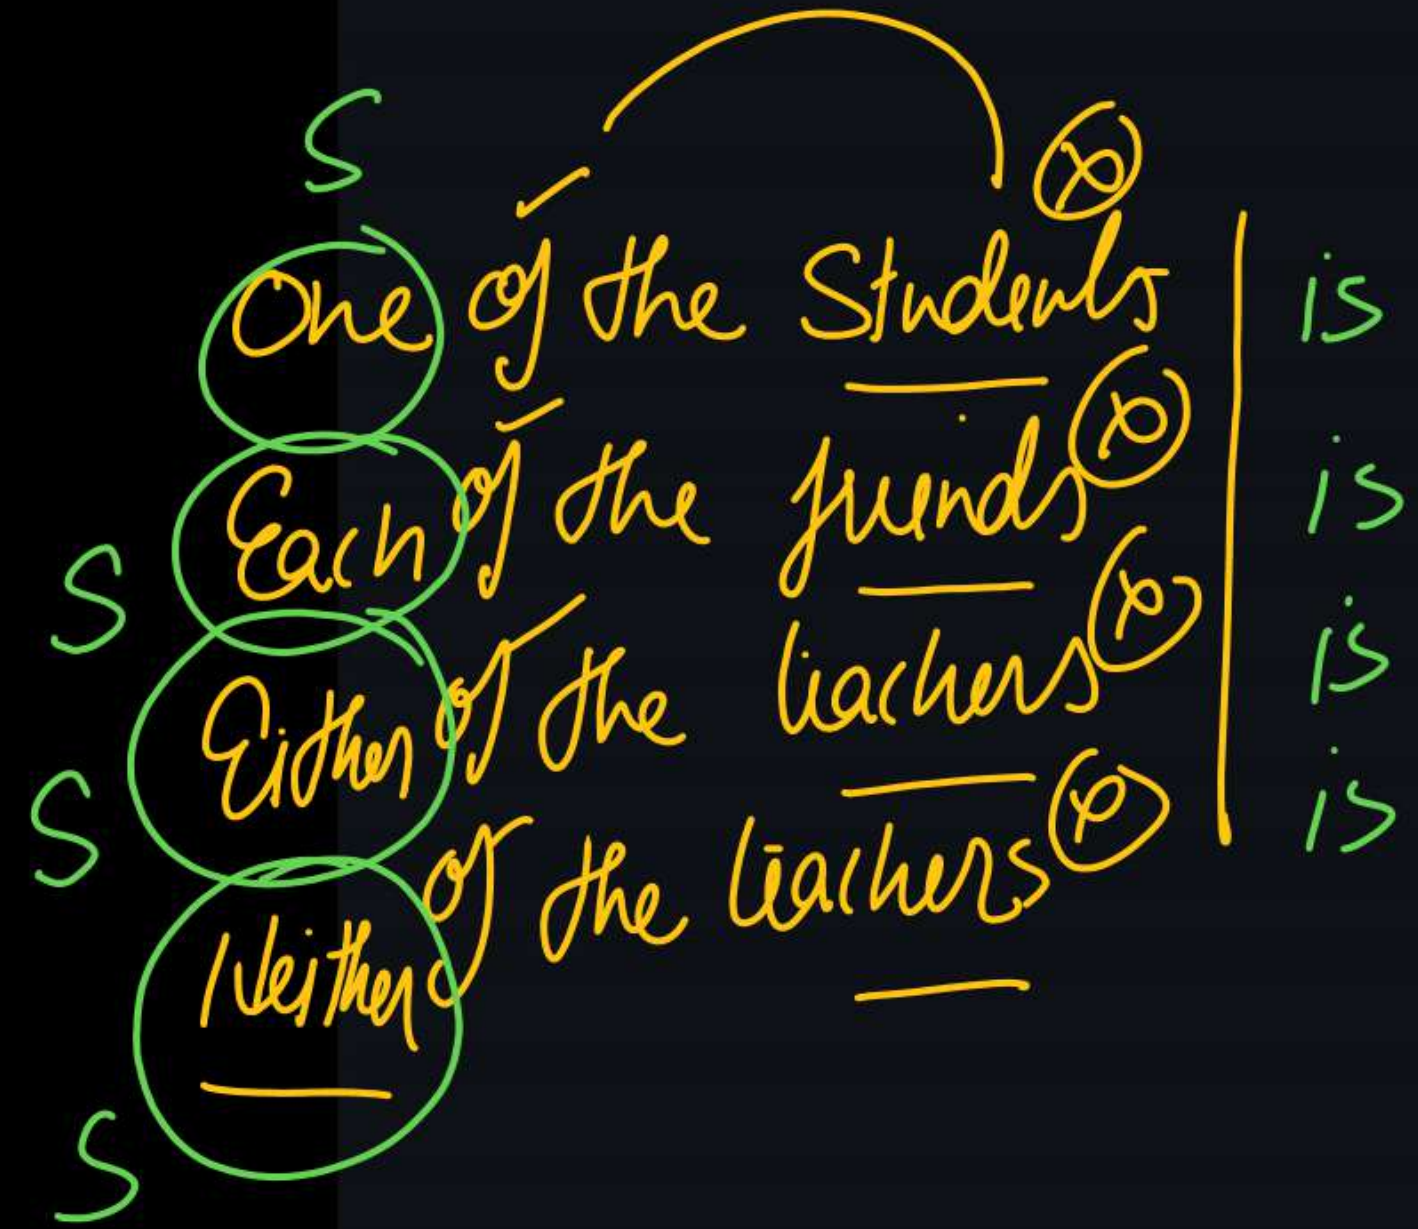 S
One of the Students is
S Each of the friends is
S Either of the teachers is
S Neither of the teachers is